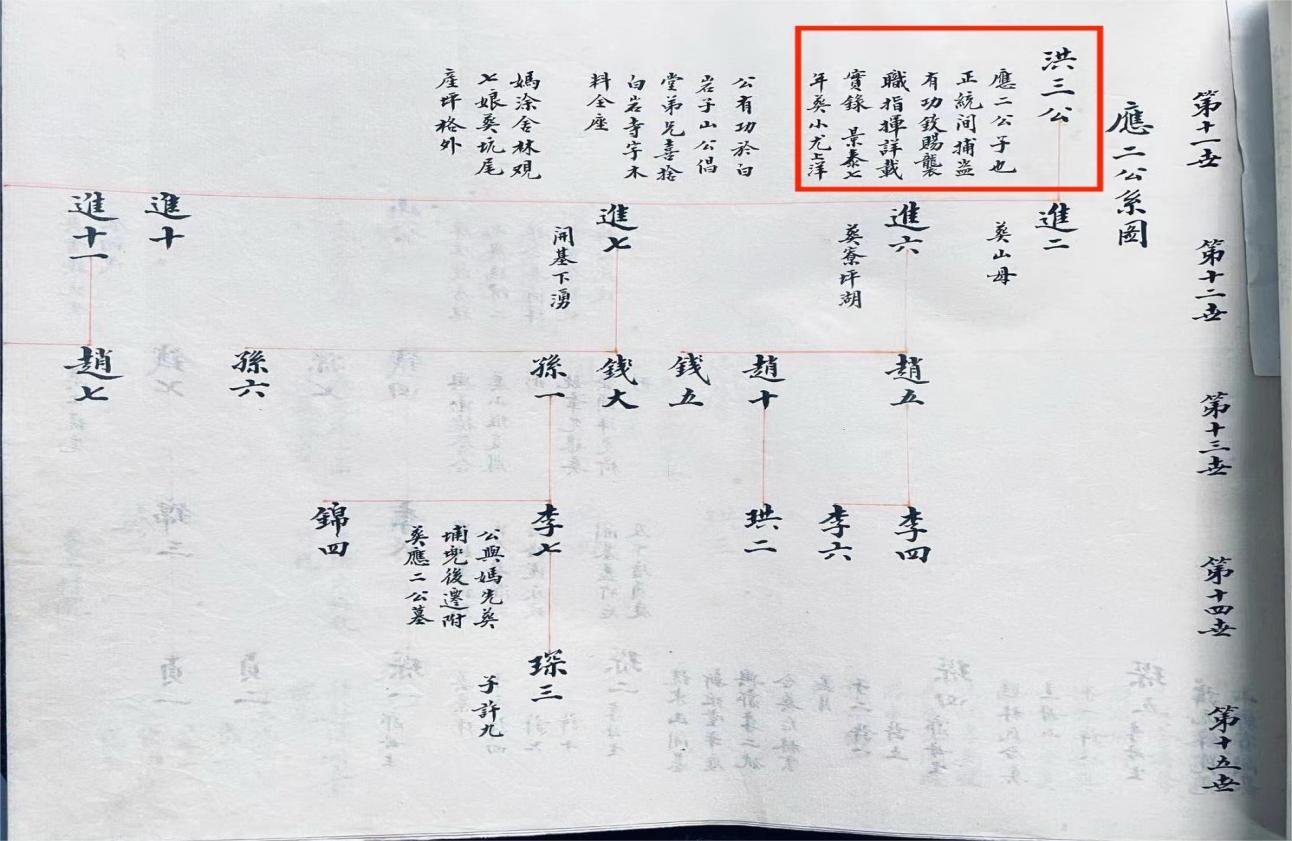 第十一世
第十二世
第十三世
第十四世
第十五世
應二公系圖
洪三公
應二公子也
正統间捕盗
有功敘賜襲
職指揮詳載
實錄 景泰七
年葵小尤上洋
公有功於白
岩子山公倡
堂弟兄喜捨
白岩寺字木
料全座
媽涂舍林观
七娘葵坑尾
産坪格外
進二
葵山母
進六
葵寮坪湖
進七
開基下湧
進十
進十一
趙五
趙十
錢五
錢大
孫一
孫六
趙七
李四
李六
珙二
李七
公與媽先葵
埔兜後遷附
葵應二公墓
錦四
琛三
子許九